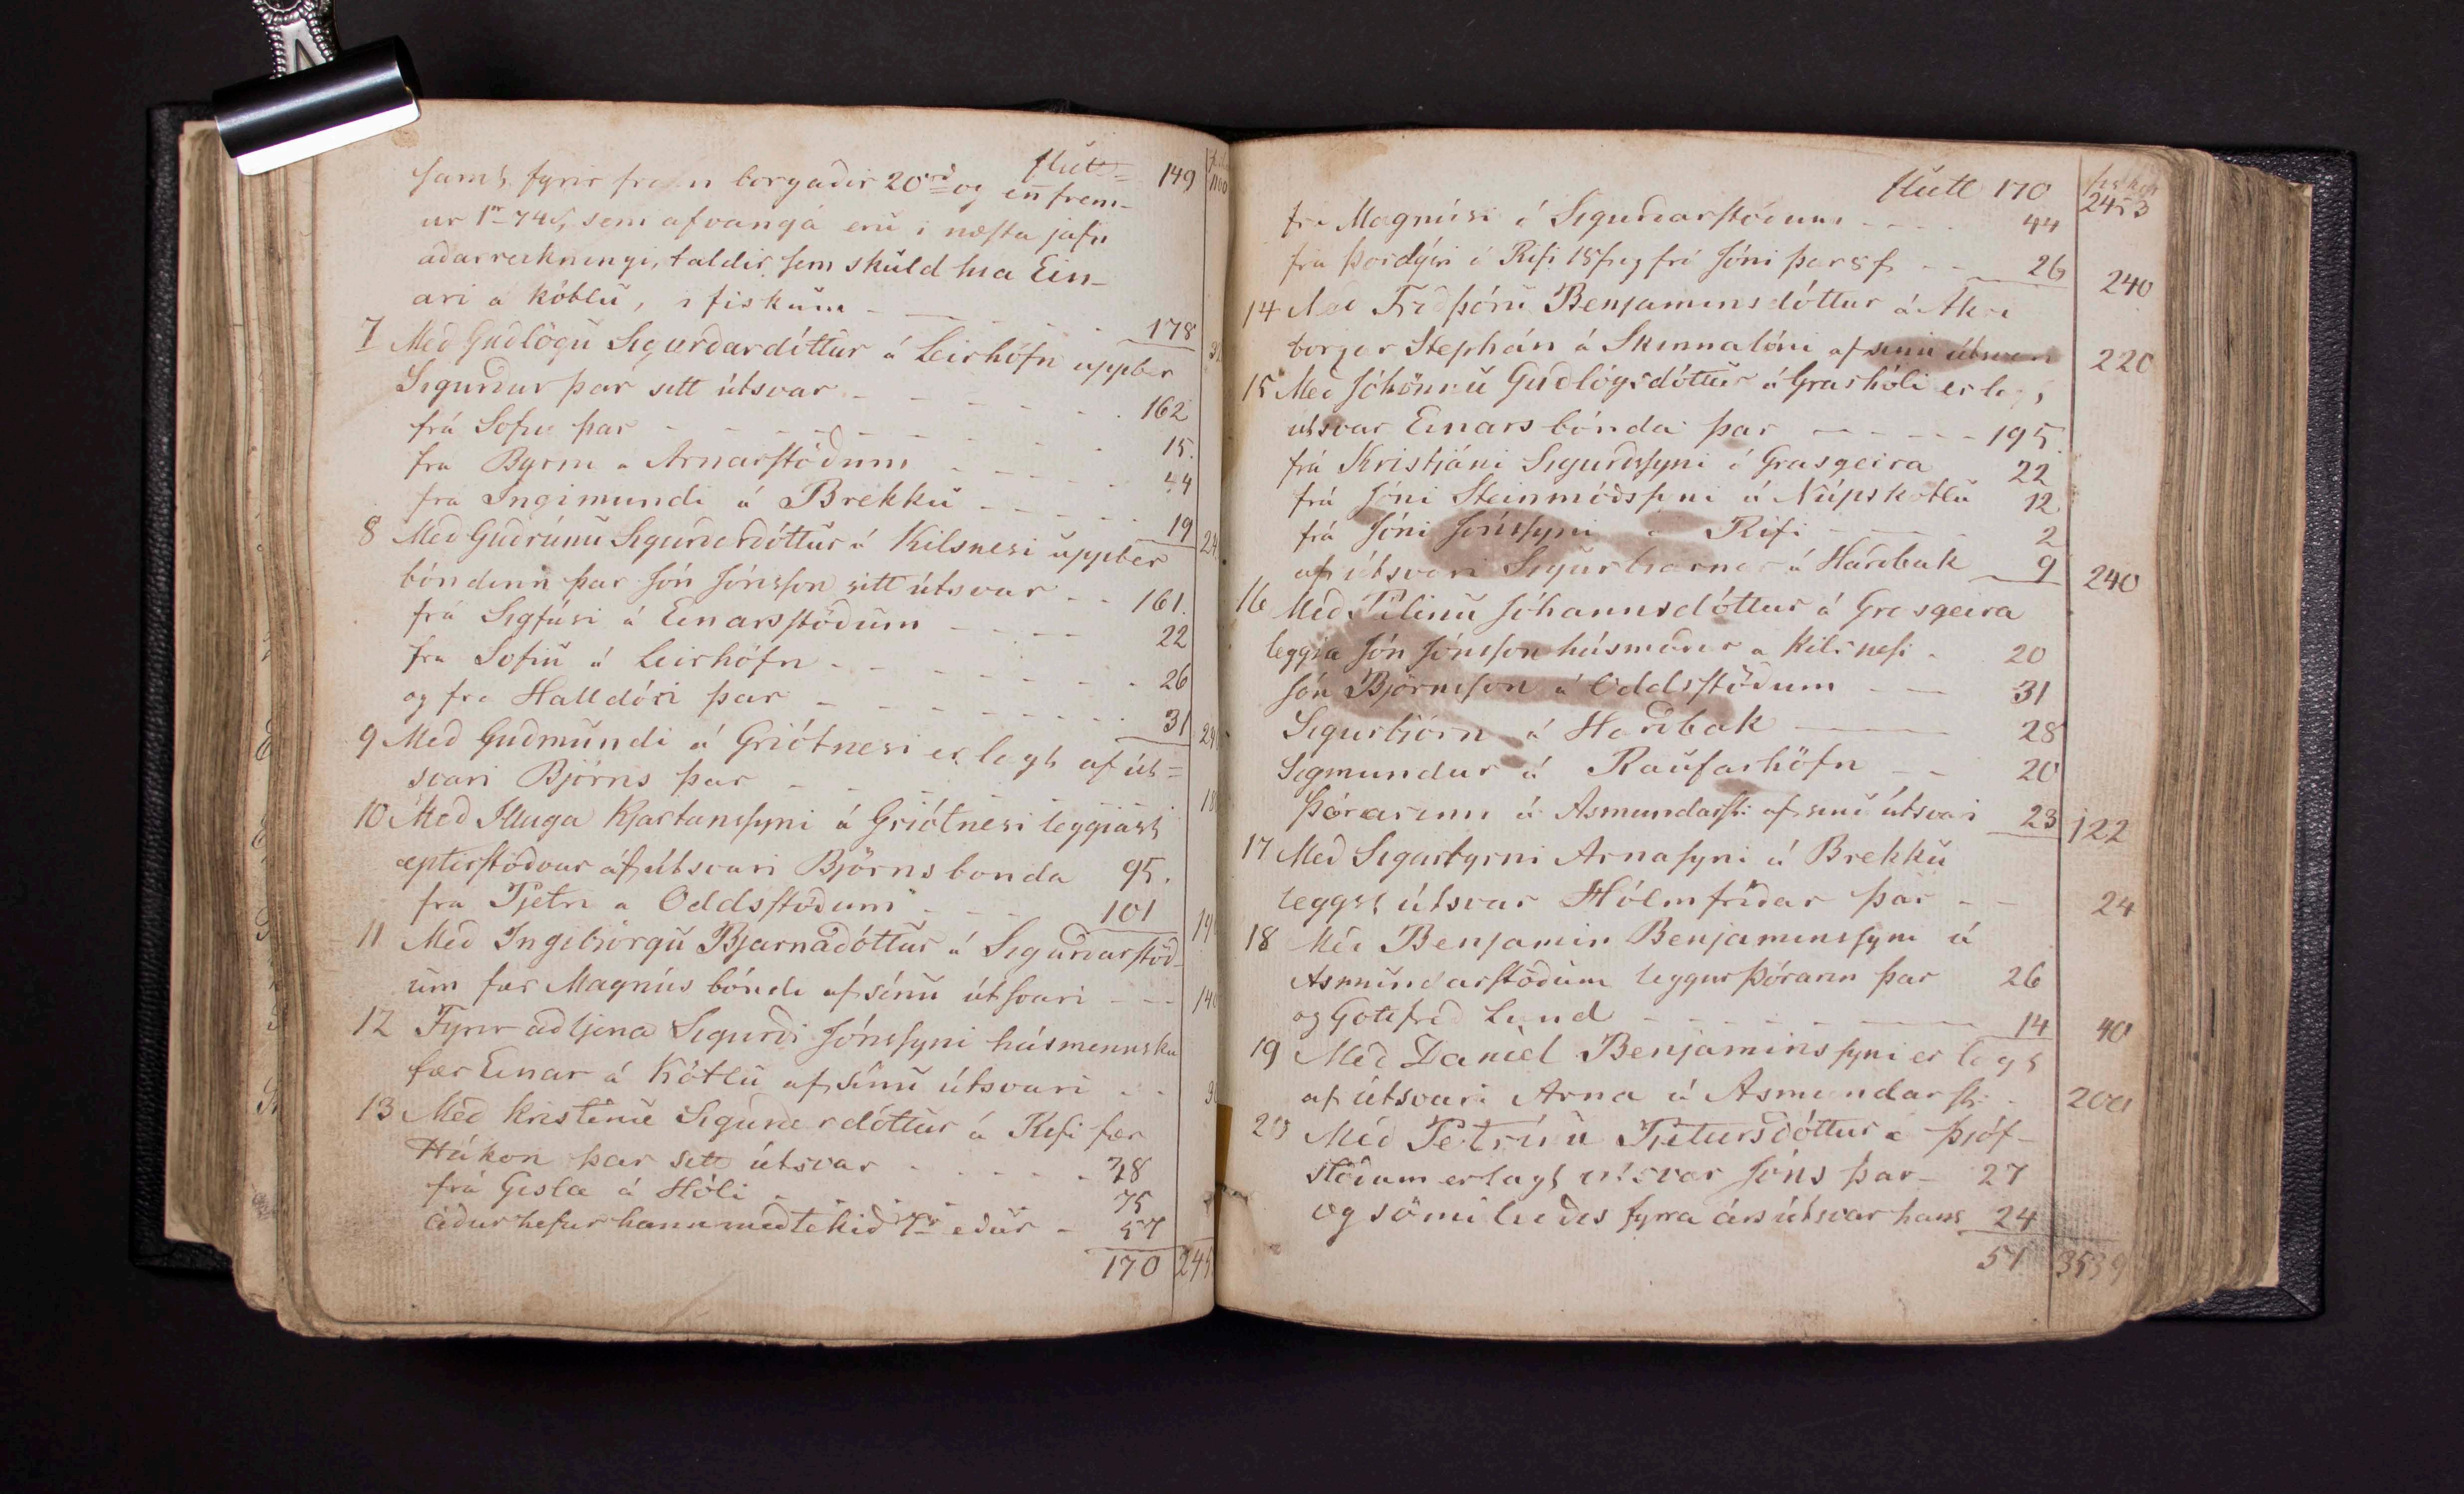 flutt = 149
samt fyrir framm borgaðir 20rd og en frem-
ur 1r 74s, sem afvangá eru i næsta jafn
aðarreikningi, taldir sem skuld hia Ein-
ari á kötlu, i fiskum - - - 178
7 Með Guðlögu Sigurðardóttur á Leirhöfn uppber
Sigurður þar sitt útsvar - - - 162
frá Sofiu þar - - - 15.
frá Byrni a Arnarstöðum - - - 44
frá Ingimundi á Brekku - - - 19
8 Með Guðrúnu Sigurðardóttur á Kilsnesi uppber
bóndinn þar Jón Jónsson sitt útsvar - - 161.
frá Sigfúsi á Einarsstöðum - - - 22
frá Sofiu á Leirhöfn - - - 26
og frá Halldóri þar - - - 31
9 Með Guðmundi á Griótnesi er lagt af út=
svari Björns þar - - -
10 Með Illuga Kjartanssyni á Griótnesi leggiast
eptirstöðvar af útsvari Björns bonda 95.
frá Pjetri a Oddsstöðum - - - 101
11 Með Ingibjörgu Bjarnadóttur á Sigurðarstöð-
um fær Magnús bóndi af sínu útsvari - - -
12 Fyrir aðljena Sigurði Jónssyni húsmennsku
fær Einar á Kötlu af sínu útsvari - -
13 Með Kristínu Sigurðardóttur á Rifi fær
Hákon þar sitt útsvar - - - 38
frá Gísla á Hóli - - - 75
áður hefur hann meðtekið 1r eður - 57
170
flutt 170 fiskar 2453
frá Magnúsi á Sigurðarstöðum - - - 44
frá Þordýsi á Rifi 15f og frá Jóni þar 5f - - 26 240
14 Með Friðþóru Benjaminsdóttur á Akri
borgar Stephán á Skinnalóni af sinu útsvari 220
15 Með Jóhönnu Guðlögsdóttur á Grashóli er lagt
útsvar Einars bónda þar - - - 195
frá Kristjáni Sigurðssyni á Grasgeira 22
frá Jóni Steinmóðssyni á Núpskötlu 12
frá Jóni Jónssyni á Rifi - - - 2
af útsvari Sigurbjarnar á Harðbak 9 240
16 Með Pálinu Jóhannsdóttur á Grasgeira
leggia Jón Jónsson húsmaður a Kilsnesi - 20
Jón Björnsson á Oddsstöðum - - 31
Sigurbjörn á Harðbak - - 28
Sigmundur á Raufarhöfn - - 20
Þórarinn á Asmundarst: af sinu útsvari 23 122
17 Með Sigurbyrni Arnasyni á Brekku
leggst útsvar Hólmfríðar þar - - 24
18 Með Benjamin Benjaminssyni á
Asmundarstöðum leggur Þórarin þar 26
og Gottfreð Lund - - - 14 40
19 Með Daniel Benjaminssyni er lagt
af útsvari Arna á Asmundarst: - 200
20 Með Petrínu Pjetursdóttur á Þjóf-
stöðum er lagt útsvar Jóns þar - 27
og sömuleiðis fyrra árs útsvar hans 24
51 3539